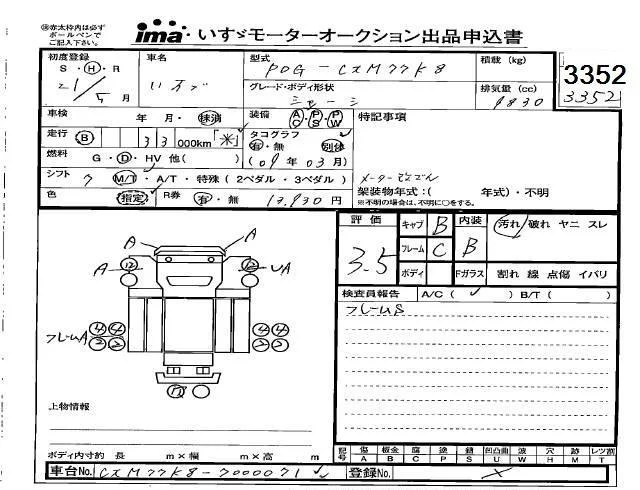 ㊟赤太枠内は必ず
ボールペンで
ご記入ください。
ima いすゞモーターオークション出品申込書
初度登録
S・Ⓗ・R
21/5月
車名
いすゞ
型式
PDG-CXM77K8
グレード・ボディ形状
シャーシ
積載 (kg)
排気量 (cc)
9830
3352
3352
車検 年 月・抹消
装備 AC・PS・PW
特記事項
走行 Ⓑ 33 000km「※」
タコグラフ
有・無 別体
(09年03月)
燃料 G・Ⓓ・HV 他( )
メーター改ざん
シフト 7 M/T・A/T・特殊(2ペダル・3ペダル)
架装物年式:( 年式)・不明
※不明の場合は、不明に○をする。
色 指定 R券 有・無 17,930円
評価 3.5
キャブ B
フレーム C
ボディ
内装 B
Fガラス
汚れ 破れ ヤニ スレ
割れ 線 点傷 イバリ
検査員報告 A/C(✓) B/T( )
フレームS
A A
A 12 12 UA
フレームA 4 4 2 2 4 4 2 2
上物情報
ボディ内寸約 長 m×幅 m×高 m
記号 傷 板金 腐 塗 錆 凹凸曲 波 穴 跡 レツ割
A B C P S U W H M T
車台No. CXM77K8-7000071
登録No.